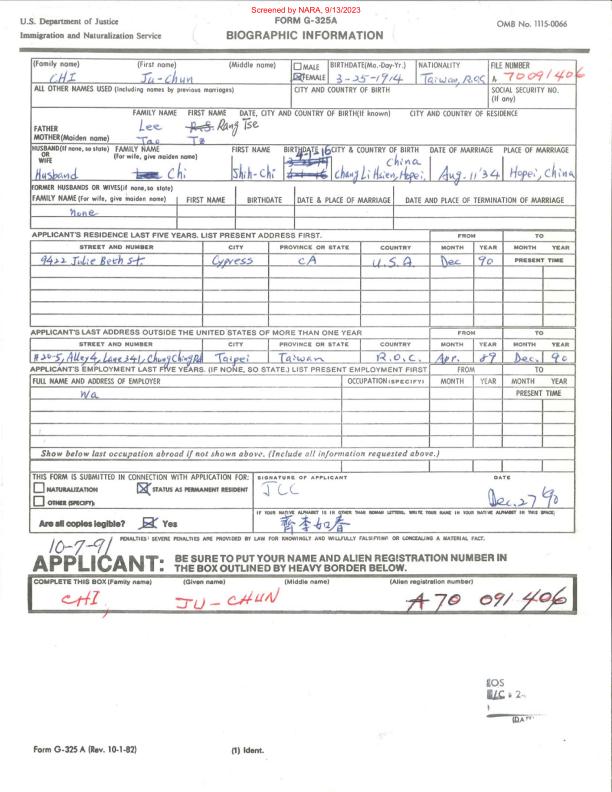 Screened by NARA, 9/13/2023
U.S. Department of Justice
Immigration and Naturalization Service
FORM G-325A
BIOGRAPHIC INFORMATION
OMB No. 1115-0066
(Family name) (First name) (Middle name) MALE FEMALE BIRTHDATE(Mo.-Day-Yr.) NATIONALITY FILE NUMBER
CHI Ju-chun 3-25-1914 Taiwan, R.O.C. A 70091406
ALL OTHER NAMES USED (Including names by previous marriages) CITY AND COUNTRY OF BIRTH SOCIAL SECURITY NO. (If any)
FAMILY NAME FIRST NAME DATE, CITY AND COUNTRY OF BIRTH(If known) CITY AND COUNTRY OF RESIDENCE
FATHER Lee Rang Tse
MOTHER(Maiden name) Tao
HUSBAND(If none, so state) OR WIFE FAMILY NAME (For wife, give maiden name) FIRST NAME BIRTHDATE CITY & COUNTRY OF BIRTH DATE OF MARRIAGE PLACE OF MARRIAGE
Husband Chi Shih-Chi 4-1-16 Chang Li Hsien, Hopei, China Aug. 11 '34 Hopei, China
FORMER HUSBANDS OR WIVES(if none, so state)
FAMILY NAME (For wife, give maiden name) FIRST NAME BIRTHDATE DATE & PLACE OF MARRIAGE DATE AND PLACE OF TERMINATION OF MARRIAGE
none
APPLICANT'S RESIDENCE LAST FIVE YEARS. LIST PRESENT ADDRESS FIRST. FROM TO
STREET AND NUMBER CITY PROVINCE OR STATE COUNTRY MONTH YEAR MONTH YEAR
9422 Julie Beth st. Cypress CA U.S.A. Dec 90 PRESENT TIME
APPLICANT'S LAST ADDRESS OUTSIDE THE UNITED STATES OF MORE THAN ONE YEAR FROM TO
STREET AND NUMBER CITY PROVINCE OR STATE COUNTRY MONTH YEAR MONTH YEAR
#20-5, Alley 4, Lane 341, Chung Ching Rd Taipei Taiwan R.O.C. Apr. 89 Dec. 90
APPLICANT'S EMPLOYMENT LAST FIVE YEARS. (IF NONE, SO STATE.) LIST PRESENT EMPLOYMENT FIRST FROM TO
FULL NAME AND ADDRESS OF EMPLOYER OCCUPATION(SPECIFY) MONTH YEAR MONTH YEAR
PRESENT TIME
Show below last occupation abroad if not shown above. (Include all information requested above.)
THIS FORM IS SUBMITTED IN CONNECTION WITH APPLICATION FOR: SIGNATURE OF APPLICANT DATE
NATURALIZATION STATUS AS PERMANENT RESIDENT JCC Dec. 27 '90
OTHER (SPECIFY):
IF YOUR NATIVE ALPHABET IS IN OTHER THAN ROMAN LETTERS, WRITE YOUR NAME IN YOUR NATIVE ALPHABET IN THIS SPACE:
Are all copies legible? Yes 齊李如春
PENALTIES: SEVERE PENALTIES ARE PROVIDED BY LAW FOR KNOWINGLY AND WILLFULLY FALSIFYING OR CONCEALING A MATERIAL FACT.
10-7-91
APPLICANT: BE SURE TO PUT YOUR NAME AND ALIEN REGISTRATION NUMBER IN
THE BOX OUTLINED BY HEAVY BORDER BELOW.
COMPLETE THIS BOX (Family name) (Given name) (Middle name) (Alien registration number)
CHI, JU-CHUN A70 091 406
Form G-325 A (Rev. 10-1-82) (1) Ident.